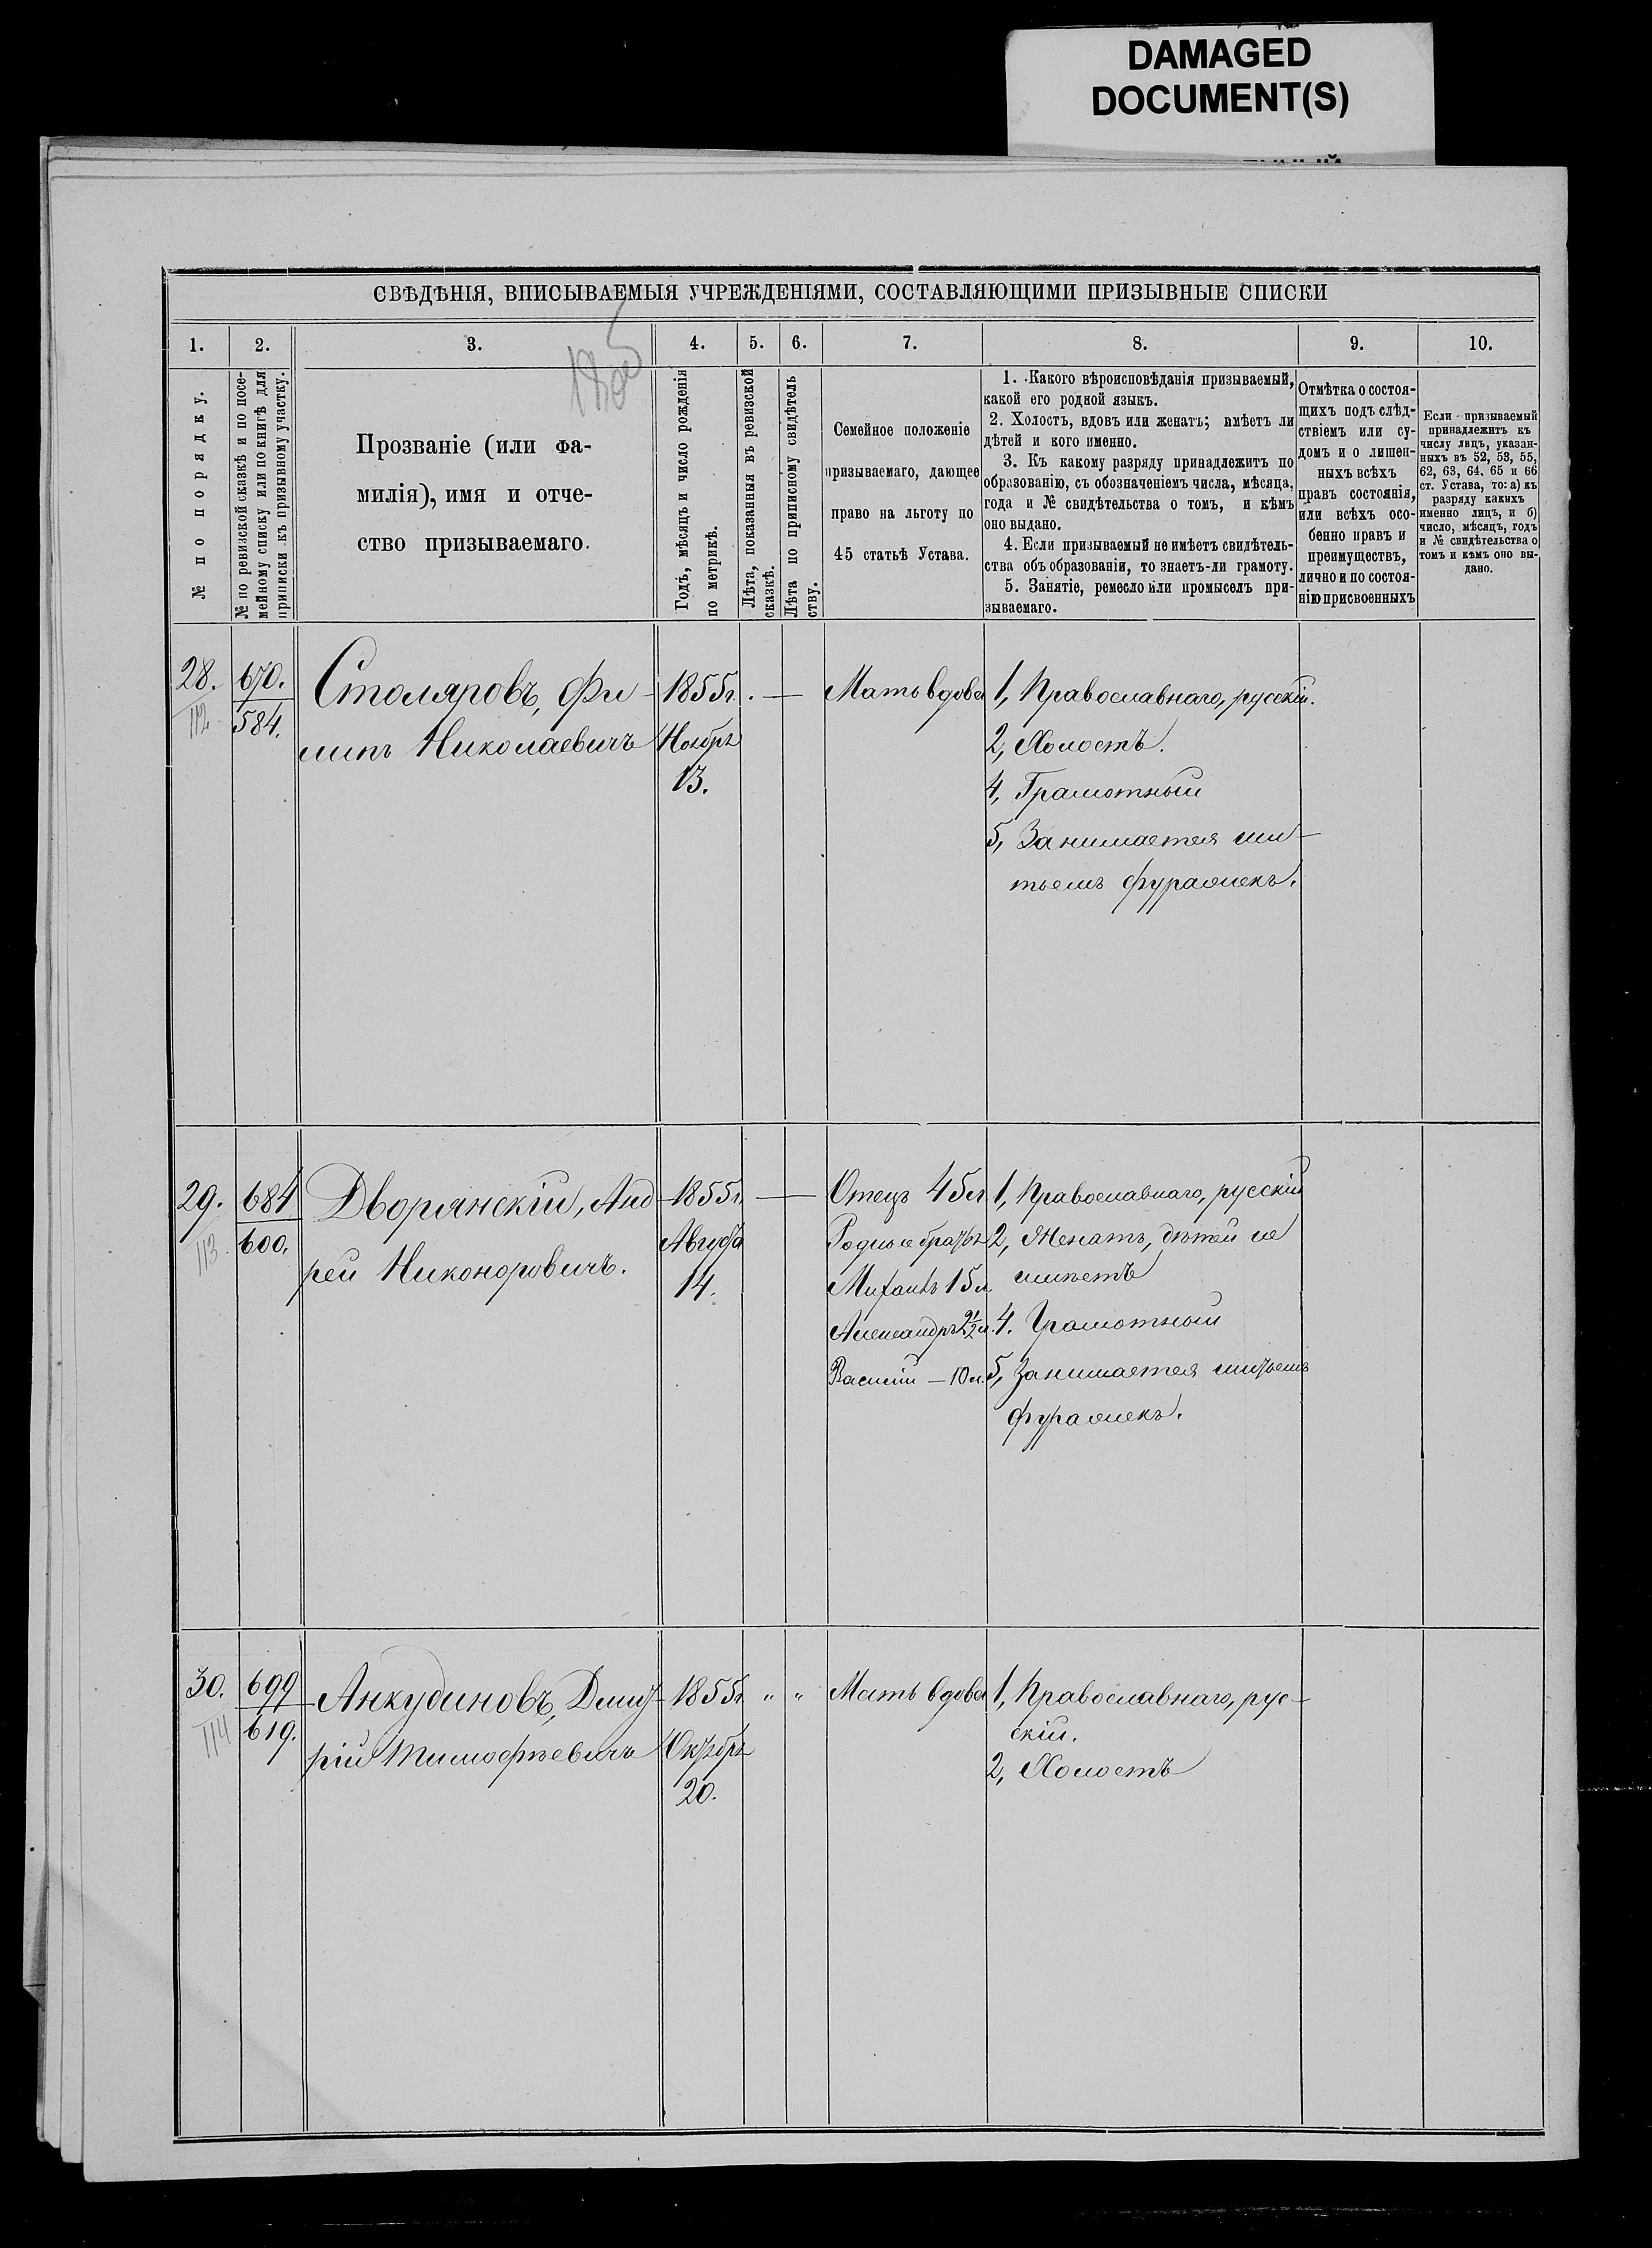 DAMAGED
DOCUMENT(S)
СВѢДѢНІЯ, ВПИСЫВАЕМЫЯ УЧРЕЖДЕНІЯМИ, СОСТАВЛЯЮЩИМИ ПРИЗЫВНЫЕ СПИСКИ
1.
2.
3.
4.
5.
6.
7.
8.
9.
10.
№ по порядку.
№ по ревизской сказкѣ и по посе-
мейному списку или по книгѣ для
приписки къ призывному участку.
Прозваніе (или фа-
милія), имя и отче-
ство призываемаго.
Годъ, мѣсяцъ и число рожденія
по метрикѣ.
Лѣта, показанныя въ ревизской
сказкѣ.
Лѣта по приписному свидѣтель
ству.
Семейное положеніе
призываемаго, дающее
право на льготу по
45 статьѣ Устава.
1. Какого вѣроисповѣданія призываемый,
какой его родной языкъ.
2. Холостъ, вдовъ или женатъ; имѣетъ ли
дѣтей и кого именно.
3. Къ какому разряду принадлежитъ по
образованію, съ обозначеніемъ числа, мѣсяца,
года и № свидѣтельства о томъ, и кѣмъ
оно выдано.
4. Если призываемый не имѣетъ свидѣтель-
ства объ образованіи, то знаетъ-ли грамоту.
5. Занятіе, ремесло или промыселъ при-
зываемаго.
Отмѣтка о состоя-
щихъ подъ слѣд-
ствіемъ или су-
домъ и о лишен-
ныхъ всѣхъ
правъ состоянія,
или всѣхъ осо-
бенно правъ и
преимуществъ,
лично и по состоя-
нію присвоенныхъ
Если призываемый
принадлежитъ къ
числу лицъ, указан-
ныхъ въ 52, 53, 55,
62, 63, 64, 65 и 66
ст. Устава, то: а) къ
разряду какихъ
именно лицъ, и б)
число, мѣсяцъ, годъ
и № свидѣтельства о
томъ и кѣмъ оно вы-
дано.
28.
112
670.
584.
Столяровъ, Фи-
липъ Николаевичъ
1855г.
Ноября
13.
Мать вдова
1, Православнаго, русскій.
2, Холостъ.
4, Грамотный
5, Занимается ши-
тьемъ фуражекъ.
29.
113.
684
600.
Дворянскій, Анд
рей Никоноровичъ.
1855г.
Августа
14.
Отецъ 45 л.
Родные братья
Михаилъ 15 л.
Александръ 2½ л.
Василій — 10 л.
1, Православнаго, русскій
2, Женатъ, дѣтей не
имѣетъ
4. Грамотный
5, Занимается шитьемъ
фуражекъ.
30.
114
699
619.
Анкудиновъ, Дмит
рій Тимофѣевичъ
1855г.
Октября
20.
" "
Мать вдова
1, Православнаго, рус-
скій.
2, Холостъ